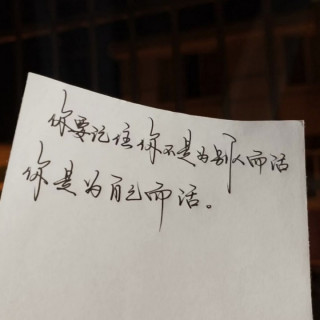 你要记住你不是为别人而活
你是为自己而活。